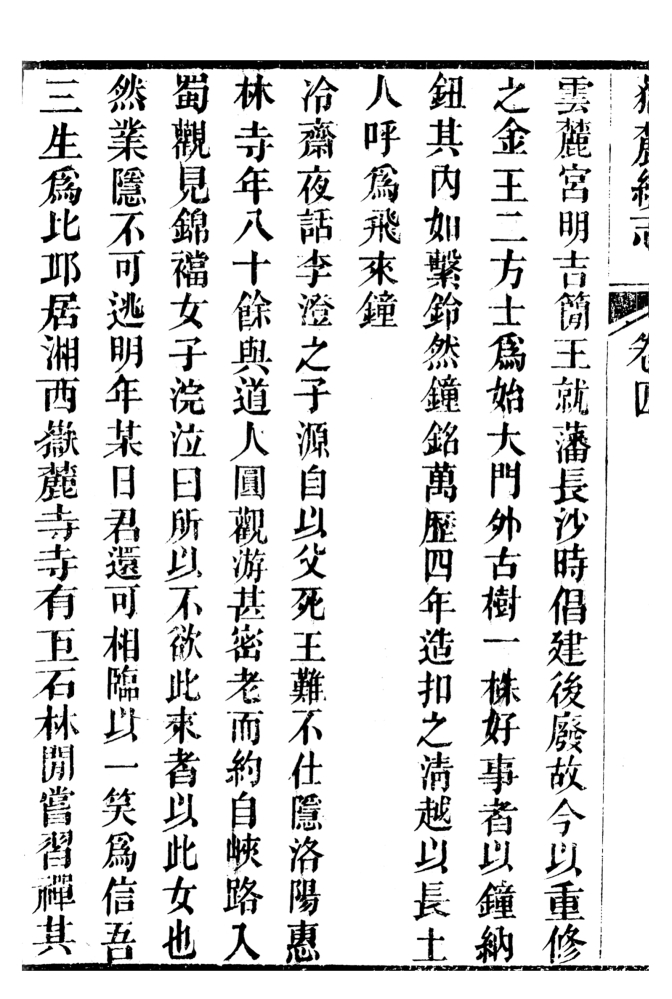 卷四
雲麓宮明吉簡王就藩長沙時倡建後廢故今以重修
之金王二方士爲始大門外古樹一株好事者以鐘納
鈕其內如繫鈴然鐘銘萬歷四年造扣之淸越以長土
人呼爲飛來鐘
冷齋夜話李澄之子源自以父死王難不仕隱洛陽惠
林寺年八十餘與道人圓觀游甚密老而約自峽路入
蜀觀見錦襠女子浣泣曰所以不欲此來者以此女也
然業隱不可逃明年某日君還可相臨以一笑爲信吾
三生爲比邱居湘西嶽麓寺寺有巨石林閒嘗習禪其